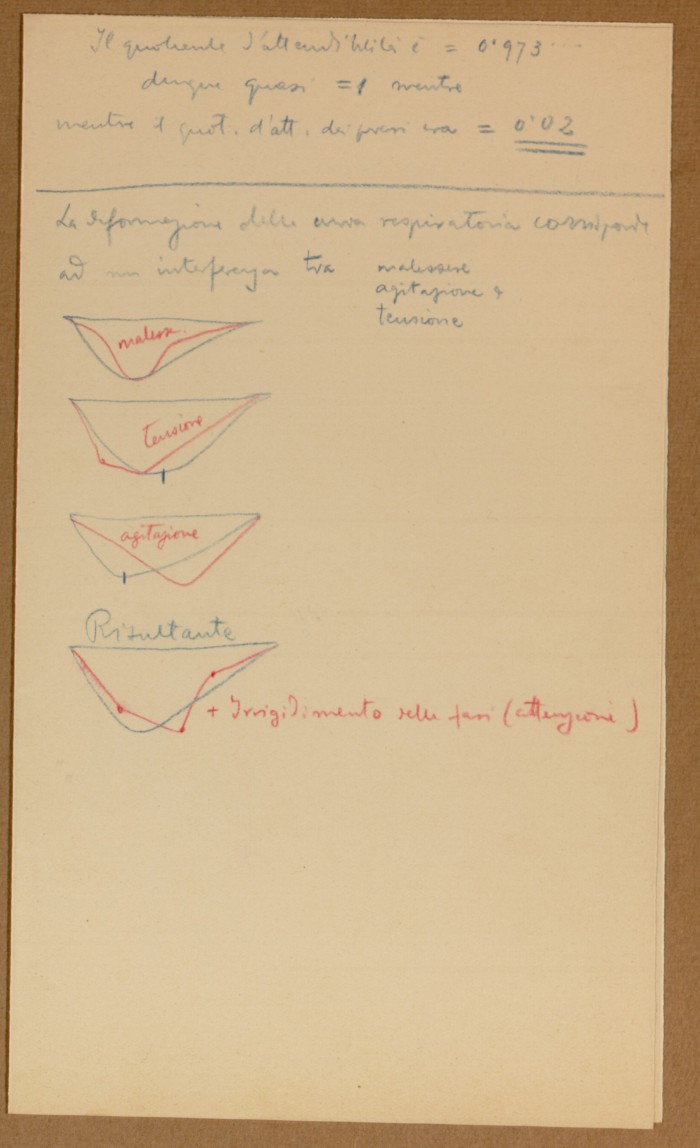 Il quoziente d'attendibilità è = 0'973...
dunque quasi = 1 mentre
mentre il quot. d'att. dei presi era = 0'02
La deformazione della curva respiratoria corrisponde
ad un interferenza tra malessere
agitazione e
tensione
malesse.
tensione
agitazione
Risultante
+ Irrigidimento nelle fasi (attenzione)